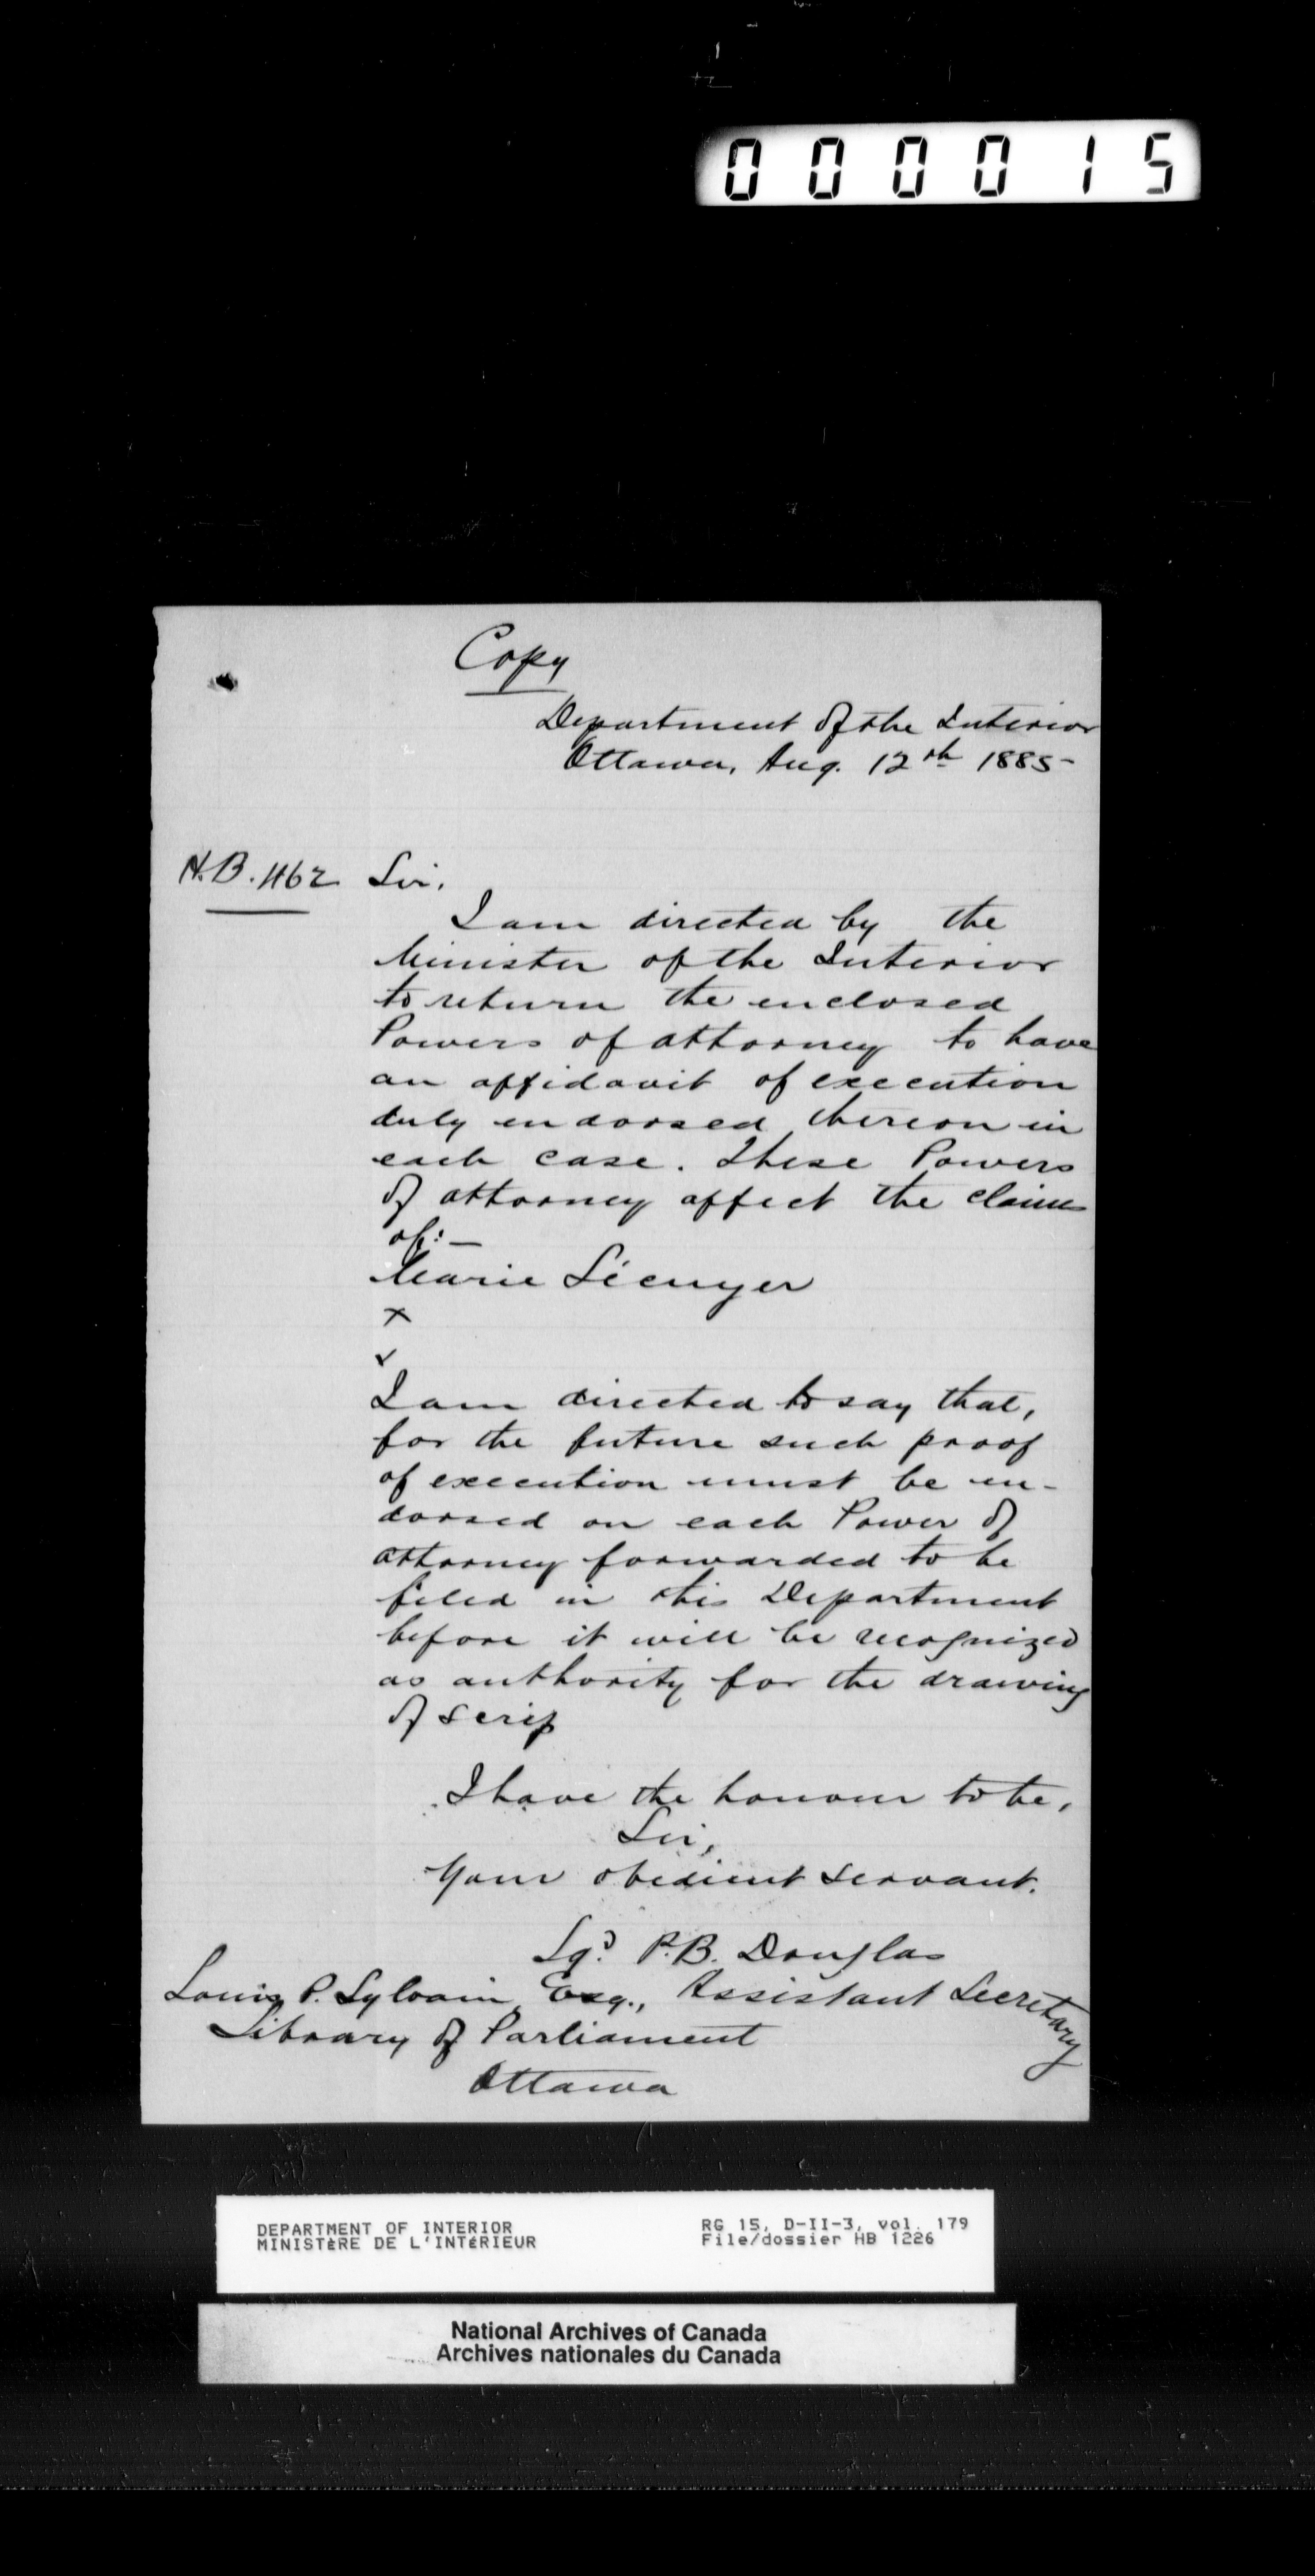 000015
Copy
Department of the Interior
Ottawa, Aug. 12th 1885
H.B. 1162 Sir.
I am directed by the
Minister of the Interior
to return the enclosed
Powers of attorney to have
an affidavit of execution
duly endorsed thereon in
each case. These Powers
of attorney affect the claims
of:—
Marie
x
x
I am directed to say that,
for the future such proof
of execution must be en-
dorsed on each Power of
attorney forwarded to be
filed in this Department
before it will be recognized
as authority for the drawing
of scrip
I have the honour to be,
Sir,
Your obedient servant.
Sgd P.B. Douglas
Louis P. Sylvain Esq., Assistant Secretary
Library of Parliament
Ottawa
DEPARTMENT OF INTERIOR RG 15, D-II-3, vol. 179
MINISTÈRE DE L'INTÉRIEUR File/dossier HB 1226
National Archives of Canada
Archives nationales du Canada